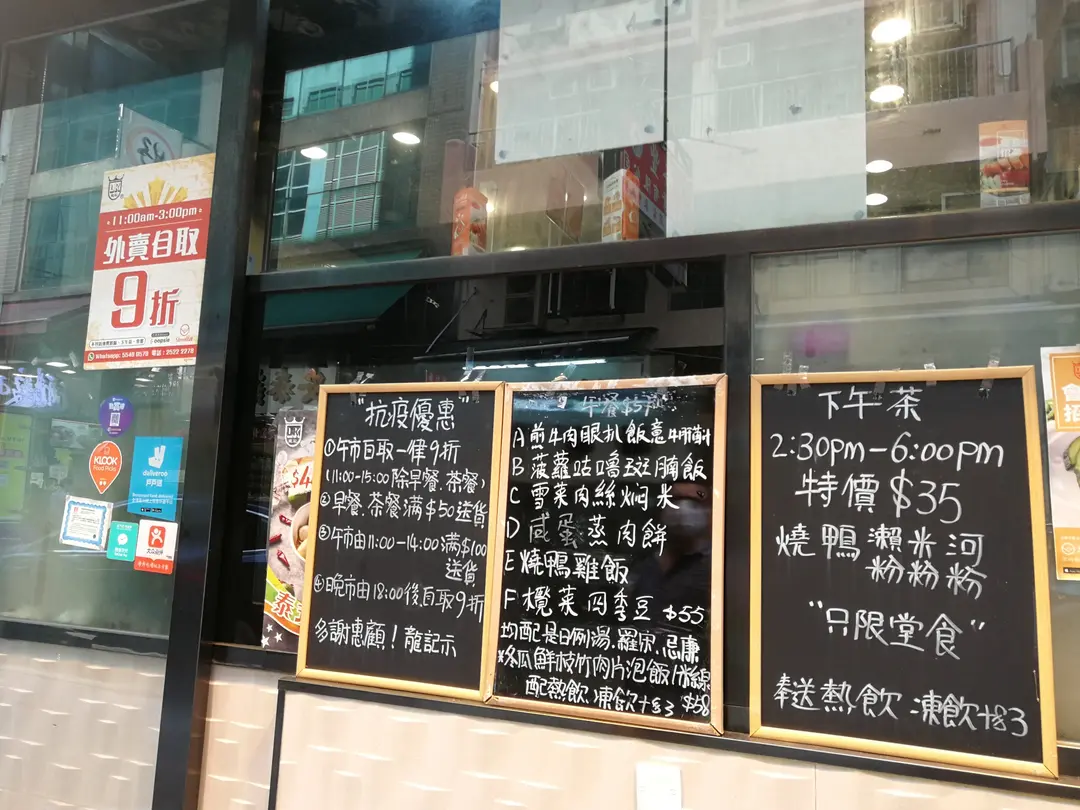 11:00am-3:00pm
外賣自取
9折
Whatsapp: 5549 8578 電話: 2522 2278
KLOOK
Food Picks
deliveroo
戶戶送
"抗疫優惠"
①午市自取一律9折
(11:00-15:00除早餐.茶餐)
②早餐.茶餐滿$50送貨
③午市由11:00-14:00滿$100
送貨
④晚市由18:00後自取9折
多謝惠顧!龍記示
A 煎牛肉眼扒飯意
B 菠蘿咕嚕班腩飯
C 雪菜肉絲焖米
D 咸蛋蒸肉餅
E 燒鴨雞飯
F 欖菜四季豆 $55
均配是日例湯.羅宋.忌廉
*冬瓜鮮枝竹肉片泡飯/米線
配熱飲.凍飲+$3 $58
下午茶
2:30pm-6:00pm
特價$35
燒鴨瀨米河
粉粉粉
"只限堂食"
送熱飲.凍飲+$3